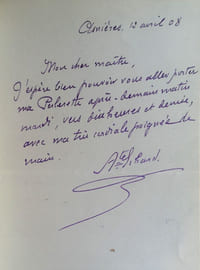 Asnières, 12 avril 08
Mon cher maître,
J'espère bien pouvoir vous aller porter
ma après-demain matin
mardi, vers dix heures et demie,
avec ma très cordiale poignée de
main.